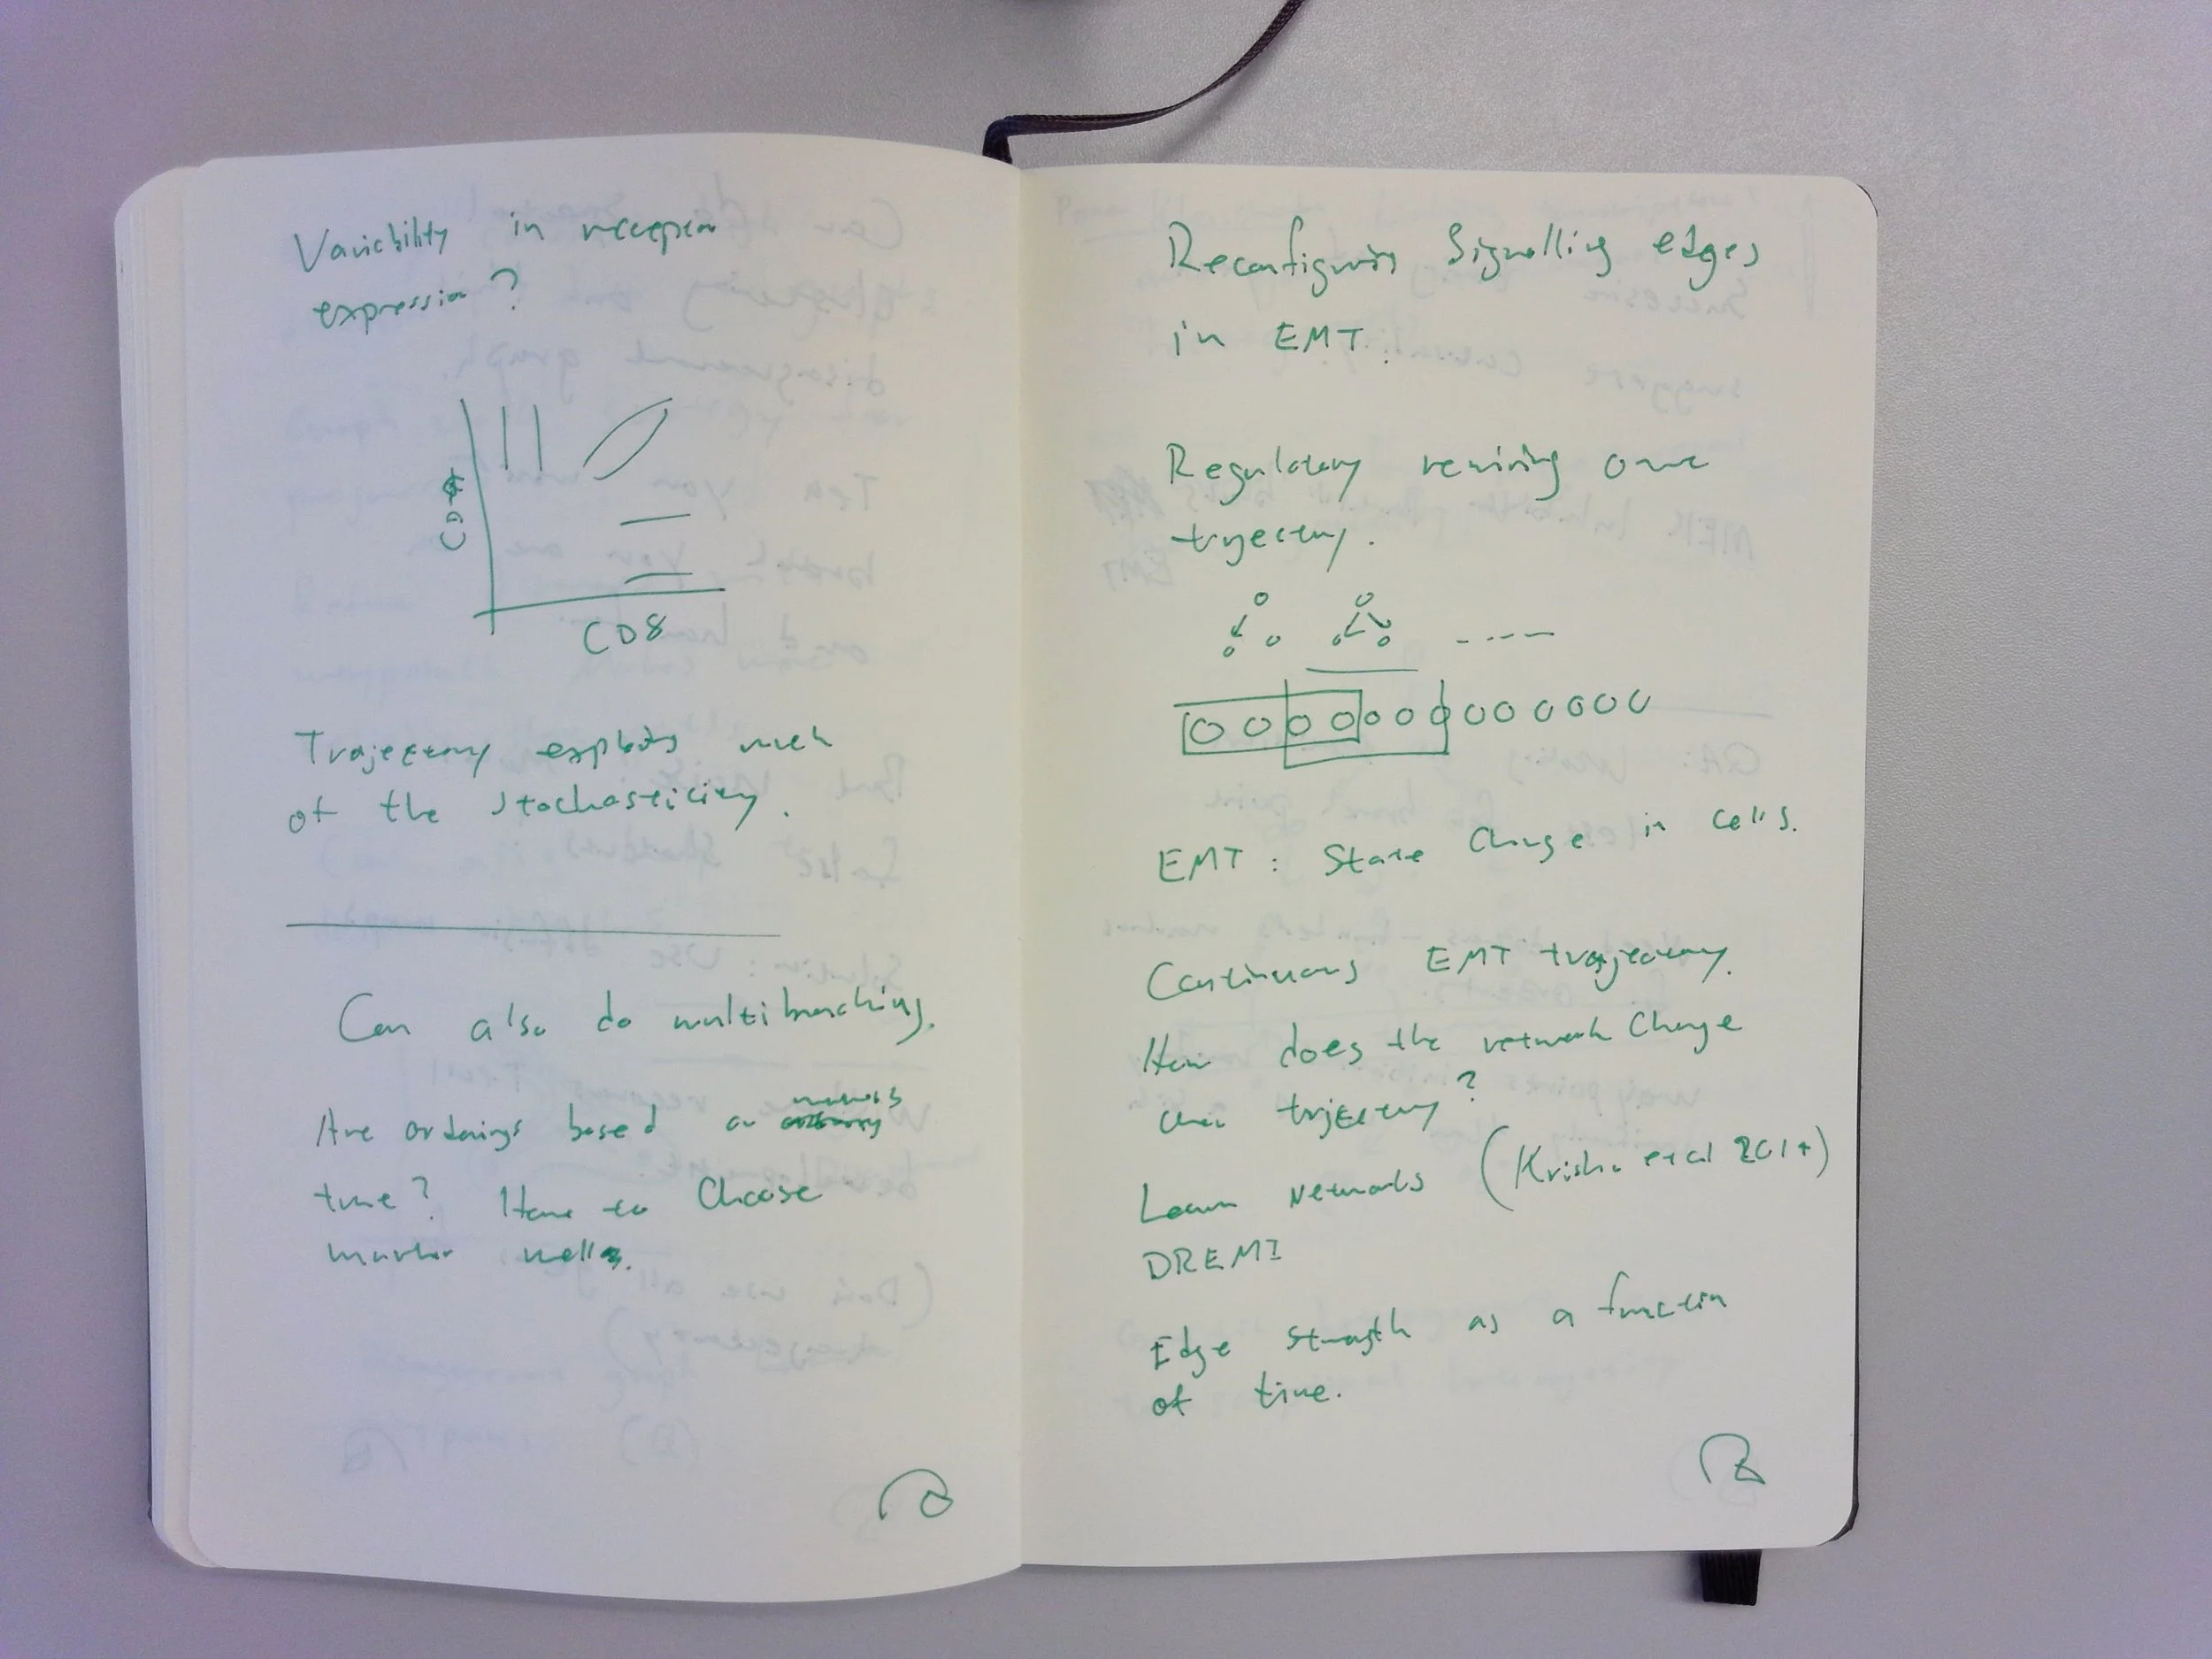 Variability in receptor
expression?
CD4
CD8
Trajectory explains much
of the stochasticity.
Can also do multibranching.
Are orderings based on
time? How to choose
marker wells.
Reconfiguring Signalling edges
in EMT.
Regulatory rewiring over
trajectory.
EMT: State Change in cells.
Continuous EMT trajectory.
How does the network Change
over trajectory?
Learn Networks (Krishna et al 2014)
DREMI
Edge strength as a function
of time.